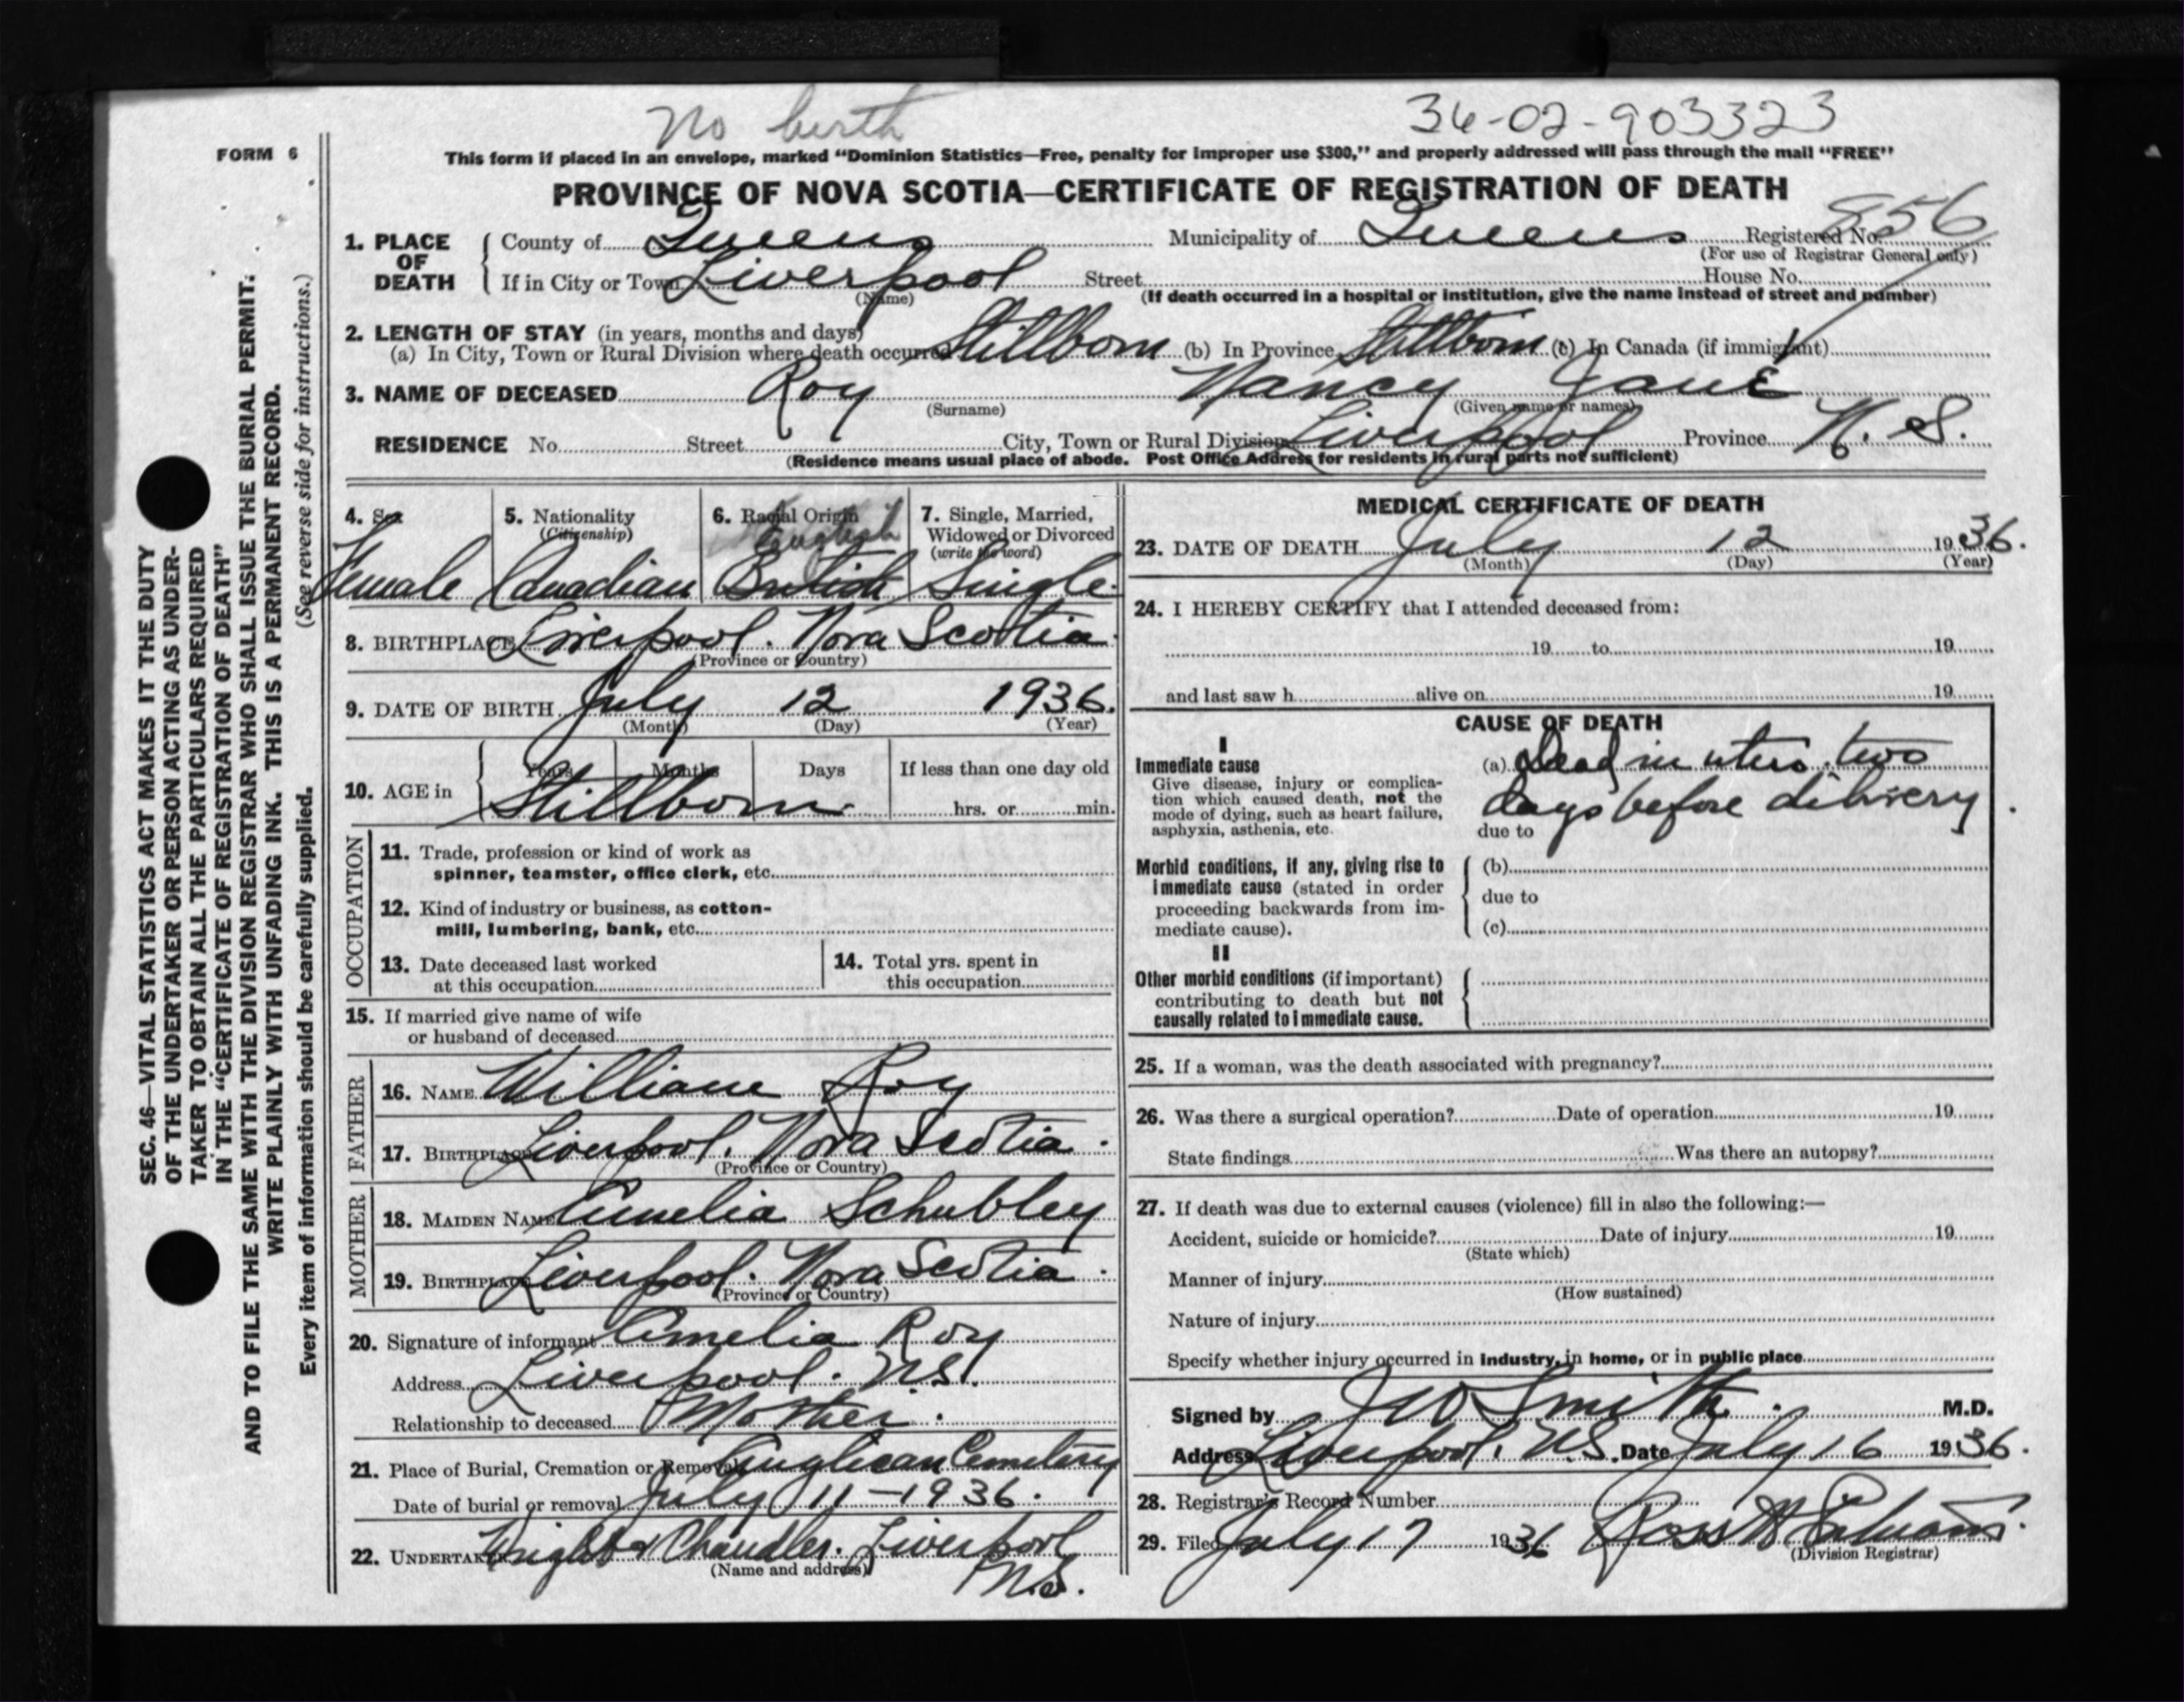 No birth
36-02-903323
FORM 6
This form if placed in an envelope, marked “Dominion Statistics—Free, penalty for improper use $300,” and properly addressed will pass through the mail “FREE”
PROVINCE OF NOVA SCOTIA—CERTIFICATE OF REGISTRATION OF DEATH
856
1. PLACE OF DEATH
County of Queens Municipality of Queens Registered No.
(For use of Registrar General only)
If in City or Town Liverpool Street House No.
(Name) (If death occurred in a hospital or institution, give the name instead of street and number)
2. LENGTH OF STAY (in years, months and days)
(a) In City, Town or Rural Division where death occurred Stillborn (b) In Province Stillborn (c) In Canada (if immigrant)
3. NAME OF DECEASED Roy Nancy Jane
(Surname) (Given name or names)
RESIDENCE No. Street City, Town or Rural Division Liverpool Province N. S.
(Residence means usual place of abode. Post Office Address for residents in rural parts not sufficient)
4. Sex 5. Nationality 6. Racial Origin 7. Single, Married,
(Citizenship) English Widowed or Divorced
(write the word)
Female Canadian British Single
8. BIRTHPLACE Liverpool. Nova Scotia
(Province or Country)
9. DATE OF BIRTH July 12 1936.
(Month) (Day) (Year)
10. AGE in Years Months Days If less than one day old
Stillborn hrs. or min.
OCCUPATION
11. Trade, profession or kind of work as
spinner, teamster, office clerk, etc.
12. Kind of industry or business, as cotton-
mill, lumbering, bank, etc.
13. Date deceased last worked
at this occupation
14. Total yrs. spent in
this occupation
15. If married give name of wife
or husband of deceased
FATHER
16. NAME William Roy
17. BIRTHPLACE Liverpool. Nova Scotia.
(Province or Country)
MOTHER
18. MAIDEN NAME Amelia Schubley
19. BIRTHPLACE Liverpool. Nova Scotia.
(Province or Country)
20. Signature of informant Amelia Roy
Address Liverpool. N.S.
Relationship to deceased Mother.
21. Place of Burial, Cremation or Removal Anglican Cemetery
Date of burial or removal July 11—1936.
22. UNDERTAKER Wright & Chandler. Liverpool
(Name and address) N.S.
MEDICAL CERTIFICATE OF DEATH
23. DATE OF DEATH July 12 1936.
(Month) (Day) (Year)
24. I HEREBY CERTIFY that I attended deceased from:
19 to 19
and last saw h alive on 19
CAUSE OF DEATH
I
Immediate cause
Give disease, injury or complica-
tion which caused death, not the
mode of dying, such as heart failure,
asphyxia, asthenia, etc.
(a) Dead in utero two
days before delivery.
due to
Morbid conditions, if any, giving rise to
immediate cause (stated in order
proceeding backwards from im-
mediate cause).
(b)
due to
(c)
II
Other morbid conditions (if important)
contributing to death but not
causally related to immediate cause.
25. If a woman, was the death associated with pregnancy?
26. Was there a surgical operation? Date of operation 19
State findings Was there an autopsy?
27. If death was due to external causes (violence) fill in also the following:—
Accident, suicide or homicide? Date of injury 19
(State which)
Manner of injury
(How sustained)
Nature of injury
Specify whether injury occurred in industry, in home, or in public place
Signed by J W Smith. M.D.
Address Liverpool. N.S. Date July 16 1936.
28. Registrar's Record Number
29. Filed July 17 1936 Ross
(Division Registrar)
SEC. 46—VITAL STATISTICS ACT MAKES IT THE DUTY
OF THE UNDERTAKER OR PERSON ACTING AS UNDER-
TAKER TO OBTAIN ALL THE PARTICULARS REQUIRED
IN THE “CERTIFICATE OF REGISTRATION OF DEATH”
AND TO FILE THE SAME WITH THE DIVISION REGISTRAR WHO SHALL ISSUE THE BURIAL PERMIT.
WRITE PLAINLY WITH UNFADING INK. THIS IS A PERMANENT RECORD.
Every item of information should be carefully supplied. (See reverse side for instructions.)